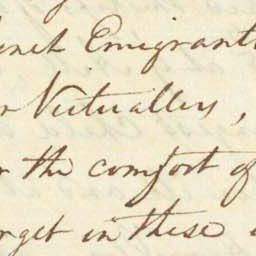 Emigrants
Victuallers,
the comfort of
in these